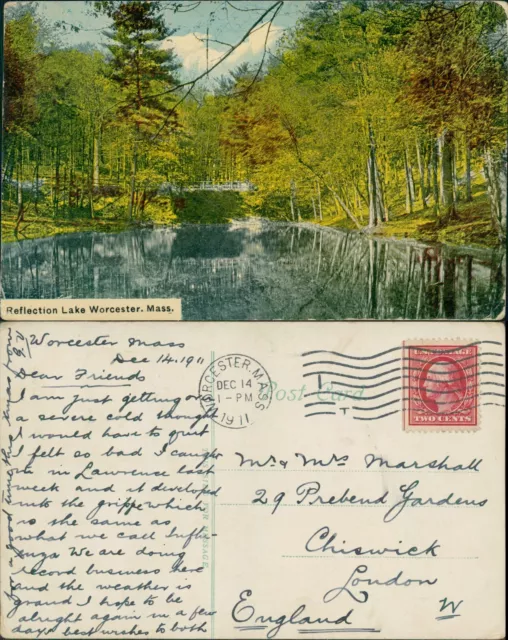 Reflection Lake Worcester. Mass.
Worcester Mass
Dec 14. 1911
Dear Friends
I am just getting over
a severe cold thought
I would have to quit
I felt so bad I caught
it in Lawrence last
week and it developed
into the grippe which
is the same as
what we call Influ-
enza We are doing
record business here
and the weather is
grand I hope to be
alright again in a few
days best wishes to both
for a good time this xmas from
WORCESTER, MASS.
DEC 14
1-PM
1911
Post Card
UNITED STATES POSTAGE
TWO CENTS
Mr & Mrs Marshall
29 Prebend Gardens
Chiswick
London
England W